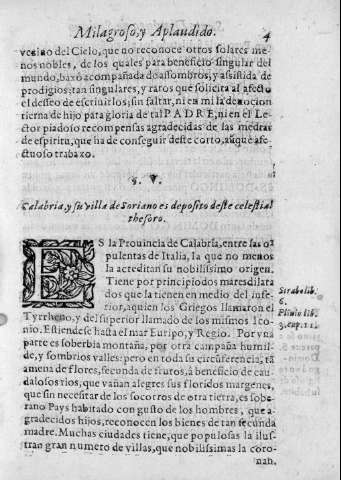 Milagroso, y Aplaudido. 4
vezino del Cielo, que no reconoce otros solares me
nos nobles, de los quales para beneficio singular del
mundo, baxò acompañada de assombros, y assistida de
prodigios; tan singulares, y raros que solicita al afecto
el desseo de escriuirlos; sin faltar, ni en mi la deuocion
tierna de hijo para gloria de tal PADRE, ni en el Le
ctor piadoso recompensas agradecidas de las medras
de espiritu, que ha de conseguir deste corto, aũque afe-
ctuoso trabaxo.
§. V.
Calabria, y su Villa de Soriano es deposito deste celestial
thesoro.
ES la Prouincia de Calabria, entre las o-
pulentas de Italia, la que no menos
la acreditan su nobilissimo origen.
Tiene por principio dos mares dilata
dos que la tienen en medio del infe-
rior, a quien los Griegos llamaron el
Tyrrheno, y del superior llamado de los mismos Ico-
nio. Estiendese hasta el mar Euripo, y Regio. Por vna
parte es soberbia montaña, por otra campaña humil-
de, y sombrios valles: pero en toda su circũferencia, tã
amena de flores, fecunda de frutos, à beneficio de cau-
dalosos rios, que vañan alegres sus floridos margenes,
que sin necesitar de los socorros de otra tierra, es sobe-
rano Pays habitado con gusto de los hombres, que a-
gradecidos hijos, reconocen los bienes de tan fecunda
madre. Muchas ciudades tiene, que populosas la ilus-
tran gran numero de villas, que nobilissimas la coro-
nan.
Strabo lib.
6.
Plinio lib.
3. cap. 11.